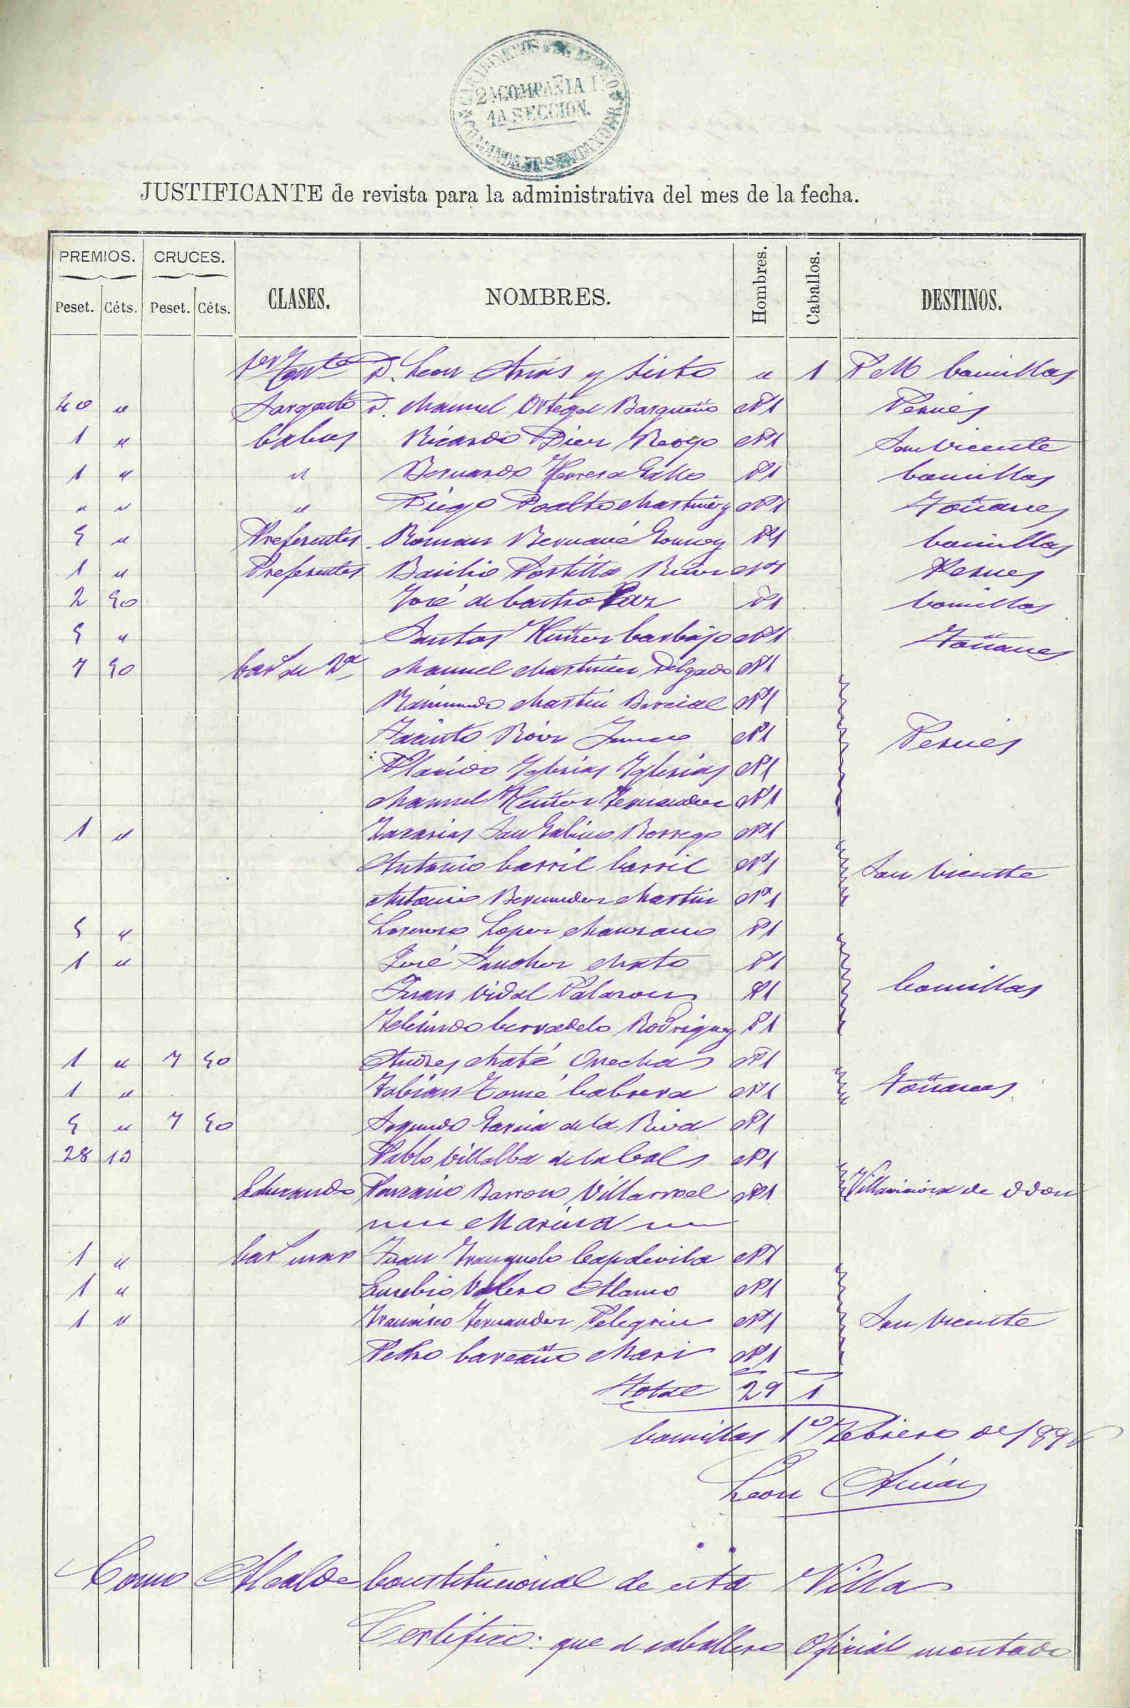 CARABINEROS
2ª COMPAÑIA
1A SECCION.
JUSTIFICANTE de revista para la administrativa del mes de la fecha.
PREMIOS. CRUCES. CLASES. NOMBRES. Hombres. Caballos. DESTINOS.
Peset. Céts. Peset. Céts.
1er Tente D. Leon Arias y Sixto " 1 P M Comillas
40 " Sargento D. Manuel Ortega Barqueño M1 Pesués
1 " Cabos Ricardo Diez Reoyo M1 San Vicente
1 " " Bernardo Herrera Gallo P1 Comillas
" " " Diego Poalto Martinez M1 Toñanes
5 " Preferentes Roman Bernavé Gomez P1 Comillas
1 " Preferentes Basilio Portilla Pesues
2 50 José de Castro P1 Comillas
5 " Santos Muñoz Carbajo M1 Toñanes
7 50 Manuel Martinez Delgado M1
Raimundo Martin Bercial M1
Jacinto M1 Pesués
Placido Iglesias Iglesias M1
Manuel Muñoz Fernandez M1
1 " Zacarias San Gabino Borrego M1
Antonio Carril Carril M1 San Vicente
Antonio Bermudez Martin M1
5 " Lorenzo Lopez Manzano P1
1 " José Sanchez Mato P1
Juan Vidal P1 Comillas
Cervadelo Rodriguez P1
1 " 7 50 Andres Maté Onecha M1
1 " Fabian Tomé Cabrera M1 Toñanes
5 " 7 50 Segundo Garcia de la Riva M1
28 13 Pablo Villalba de la Cal M1
Educando Barroso Villarroel M1 Villaviciosa de Odon
Marina
1 " Car. mar Juan Franquelo Capdevila M1
1 " Eusebio Valero Alamo M1
1 " Francisco Fernandez Pelegrin M1 San Vicente
Pedro Mari M1
Total 29 1
Comillas 1º Febrero de
Leon Arias
Como Alcalde Constitucional de esta Villa
Certifico: que el caballero Oficial montado